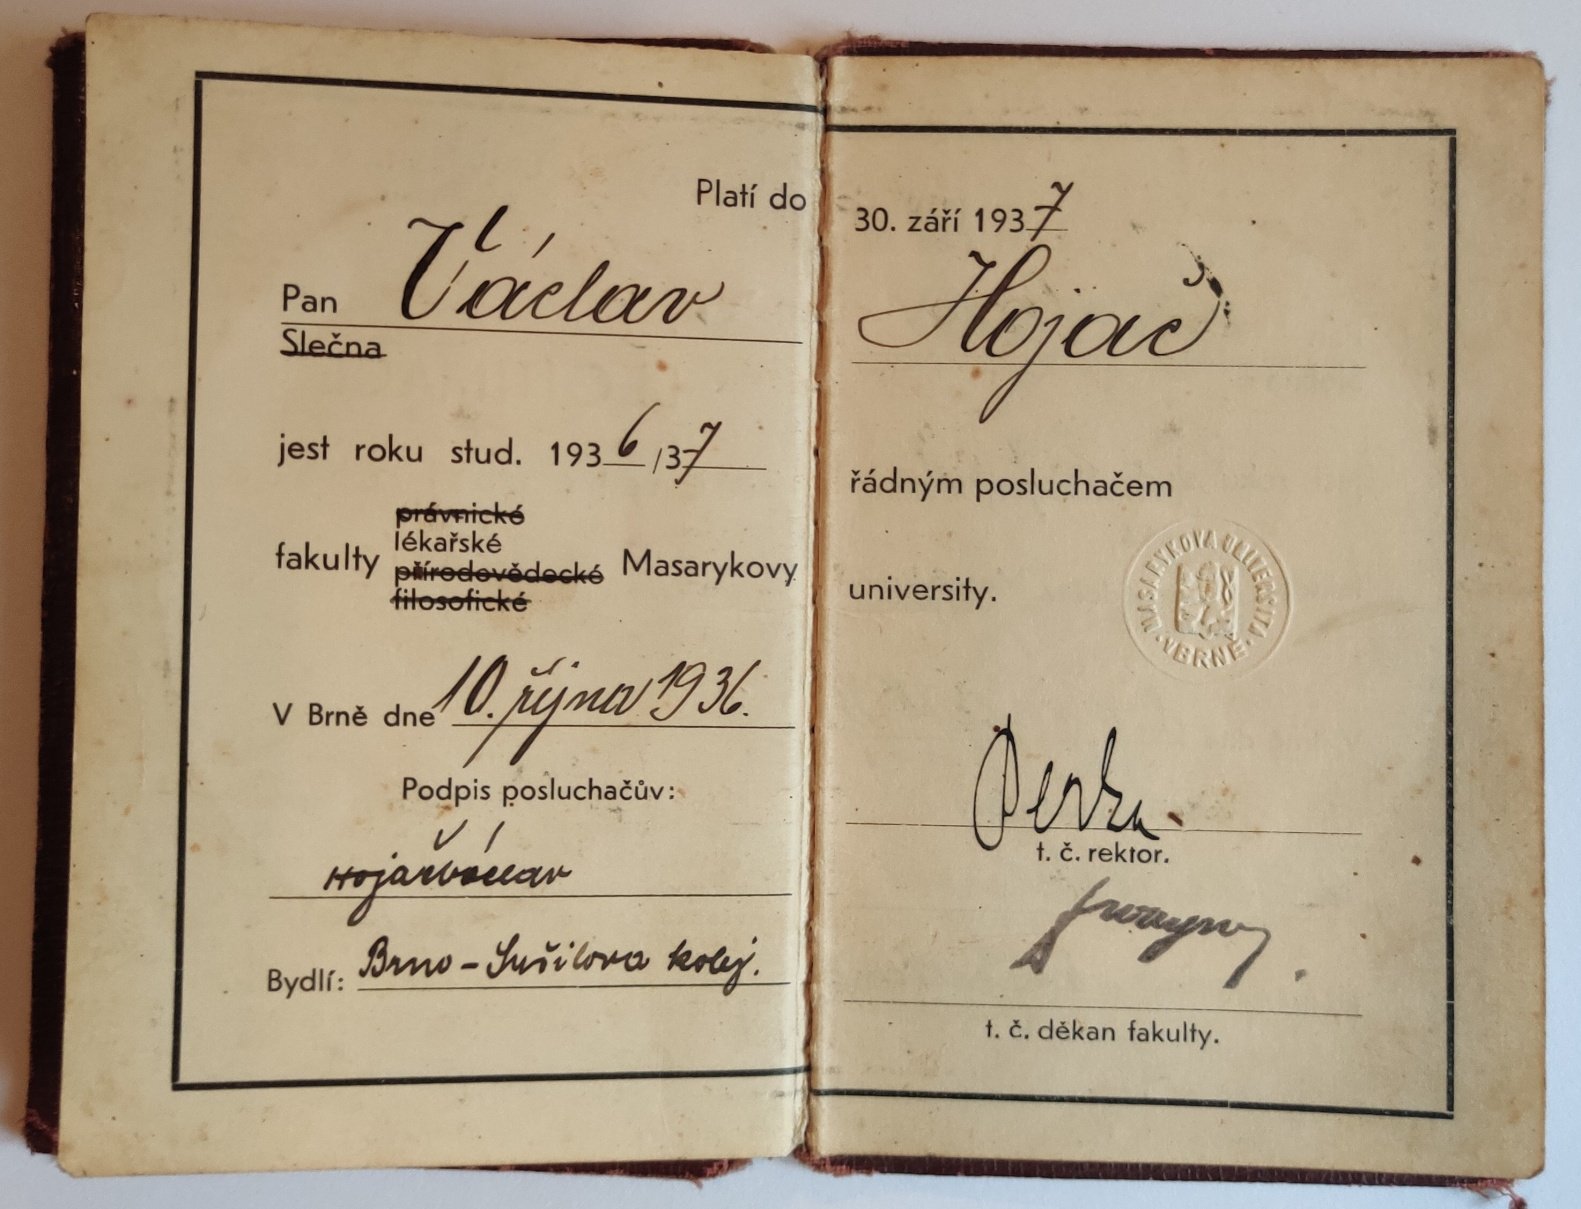 Platí do 30. září 1937
Pan Václav Hojač
Slečna
jest roku stud. 1936/37 řádným posluchačem
právnické
lékařské
fakulty přírodovědecké Masarykovy university.
filosofické
MASARYKOVA UNIVERSITA V BRNĚ
V Brně dne 10. října 1936.
Podpis posluchačův:
Hojač Václav
t. č. rektor.
Bydlí: Brno - Sušilova kolej.
t. č. děkan fakulty.